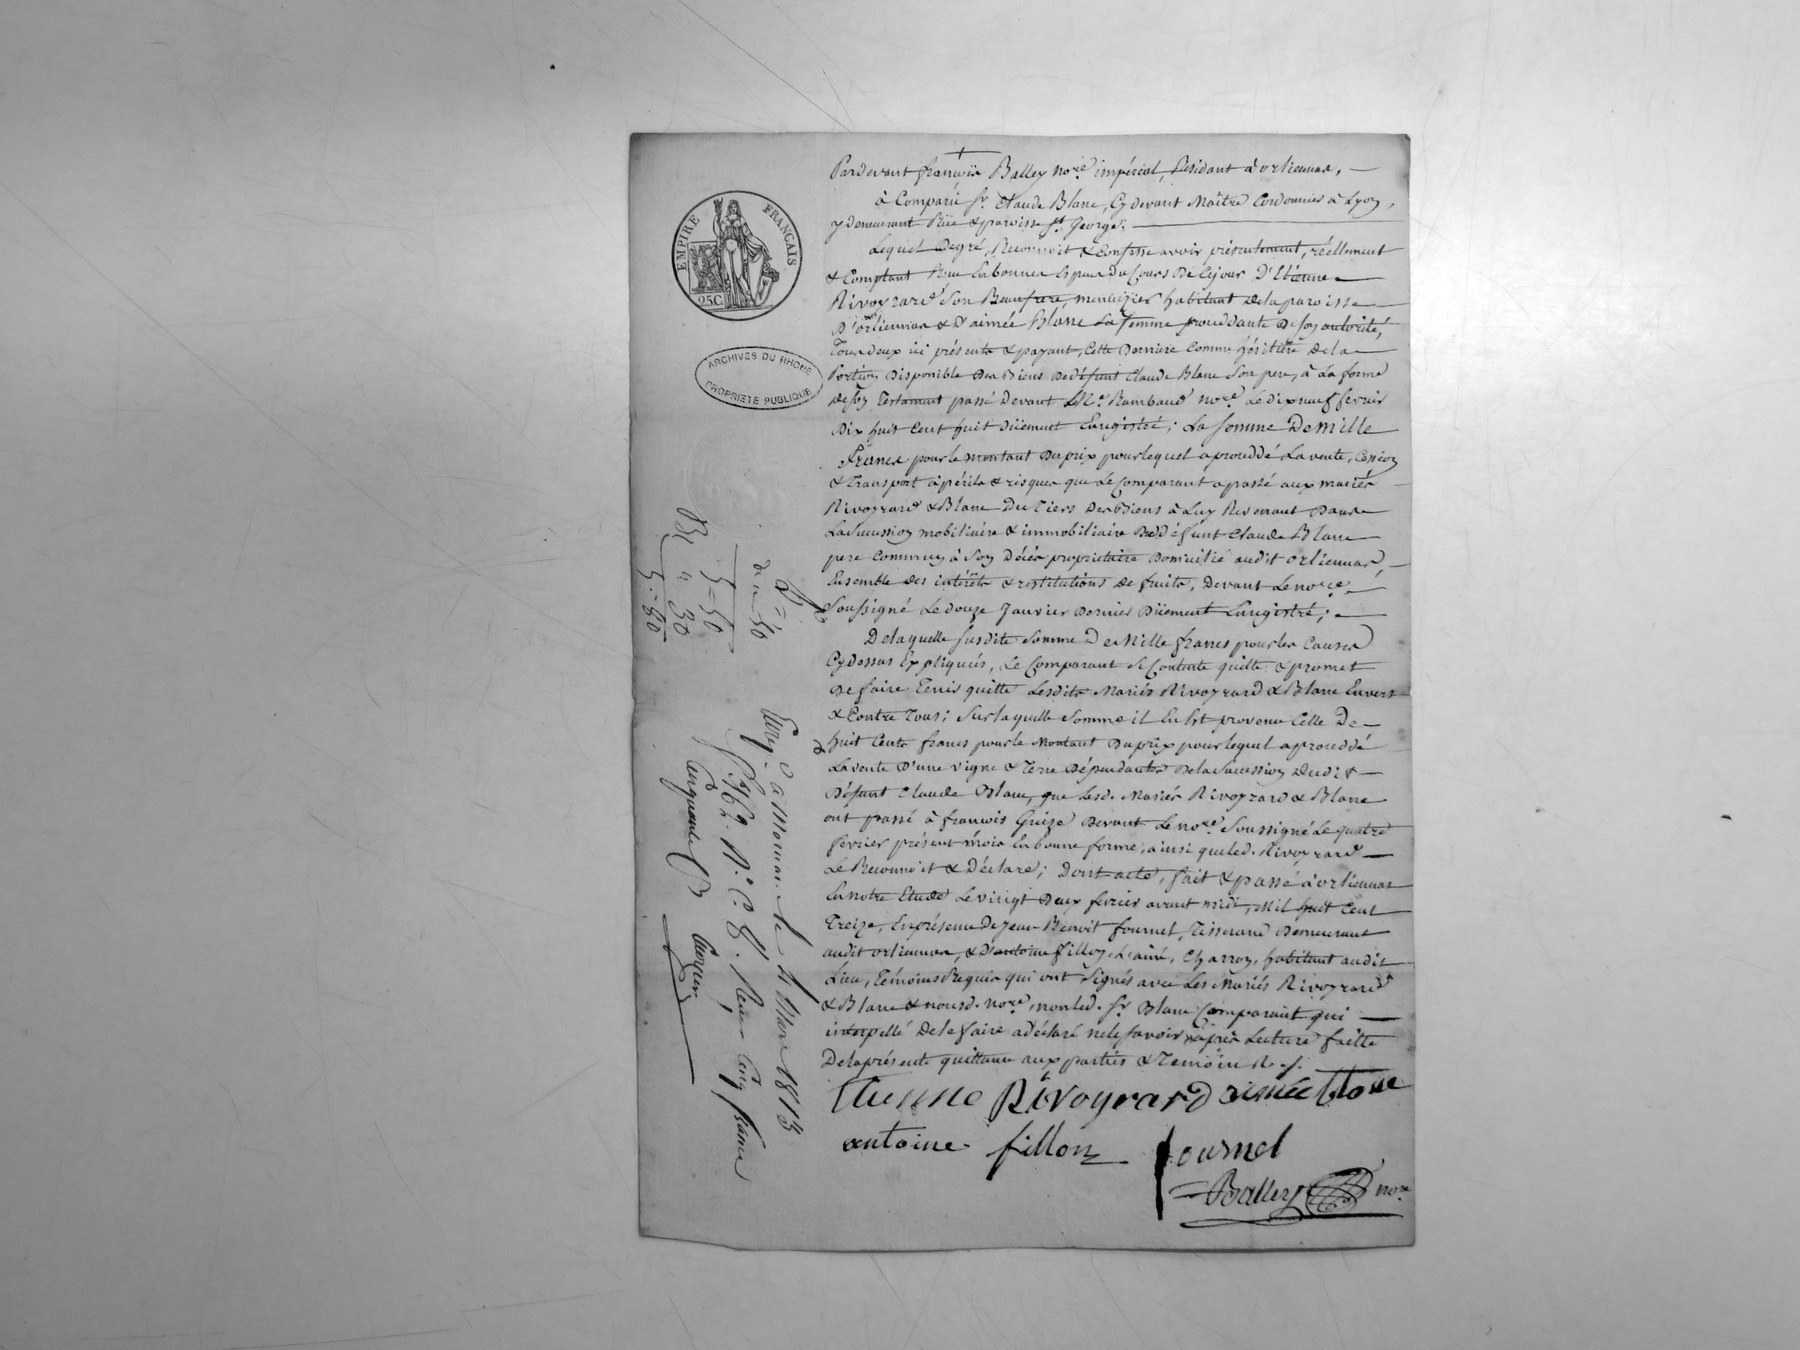 EMPIRE FRANÇAIS
25C
ARCHIVES DU RHONE
PROPRIETE PUBLIQUE
Pardevant françois Balley no.re impérial, Résidant à orliennas,
à Comparu s.r Claude Blanc, Cydevant Maître Cordonnier à Lyon,
y demeurant Rüe & paroisse st George,
Lequel Degré, Reconnoit & Confesse avoir présentement, réellement
& Comptant Reçu En bonnes Espèces Du Cours De Cejour D'Etienne
Rivoyzard Son Beaufrere, menuizier habitant dela paroisse
D'orliennas & D'aimée Blanc Sa femme procédante De son autorité,
Tous deux ici présents & payant, Cette Dernière Comme héritière dela
Portion Disponible Des Biens De Défunt Claude Blanc Son pere, à La forme
de son Testament passé Devant Me Rambaud no.re Le dixneuf fevrier
Dix huit Cent huit Dûement Enregistré; La Somme De Mille
Francs pour le montant Du prix pour lequel a procédé La vente, Cession
& Transport à périls & risques que Le Comparant a passé aux mariés
Rivoyzard & Blanc Du Tiers Des Biens à Luy Revenant Dans
La Succession mobiliaire & immobiliaire De Défunt Claude Blanc
pere Commun, à Son Décès propriétaire Domicilié audit orliennas,
Ensemble des intérêts & restitutions de fruits, Devant Le no.re
Soussigné Le douze Janvier Dernier Dûement Enregistré;
Delaquelle Susdite Somme De Mille francs pour les Causes
Cydessus Expliquées, Le Comparant Se Contente quitte & promet
De faire Tenir quitte Lesdits Mariés Rivoyzard & Blanc Envers
& Contre Tous; Sur laquelle Somme il En Est provenu Celle De
huit Cents francs pour le Montant Du prix pour lequel a procédé
La vente D'une vigne & Terre Dépendantes De la Succession Dudit
Défunt Claude Blanc, que Lesd. Mariés Rivoyzard & Blanc
ont passé à françois Guize Devant Le no.re Soussigné Le quatre
fevrier présent mois En bonne forme, ainsi que led. Rivoyzard
Le Reconnoit & Déclare; Dont acte, fait & passé à orliennas
En notre Etude Le vingt Deux fevrier avant midi, Mil huit Cent
Treize, En présence De Jean Benoit fournel, Tisserand Demeurant
audit orliennas, & D'antoine fillon L'ainé, Charron, habitant audit
Lieu, Témoins Requis qui ont Signés avec Les Mariés Rivoyzard
& Blanc & nousd. no.re, non led. s.r Blanc Comparant qui
interpellé De le faire a déclaré ne le Savoir, après Lecture faitte
De la présente quittance aux parties & Témoins
Etienne Rivoyrard aimée Blanc
antoine fillon fournel
Balley no.re
5 = 50
30
5 = 80
Enreg.é à Mornant le 4 Mars 1813
f.o 62 R.o C. 8. Reçu Cinq francs
Cinquante C.